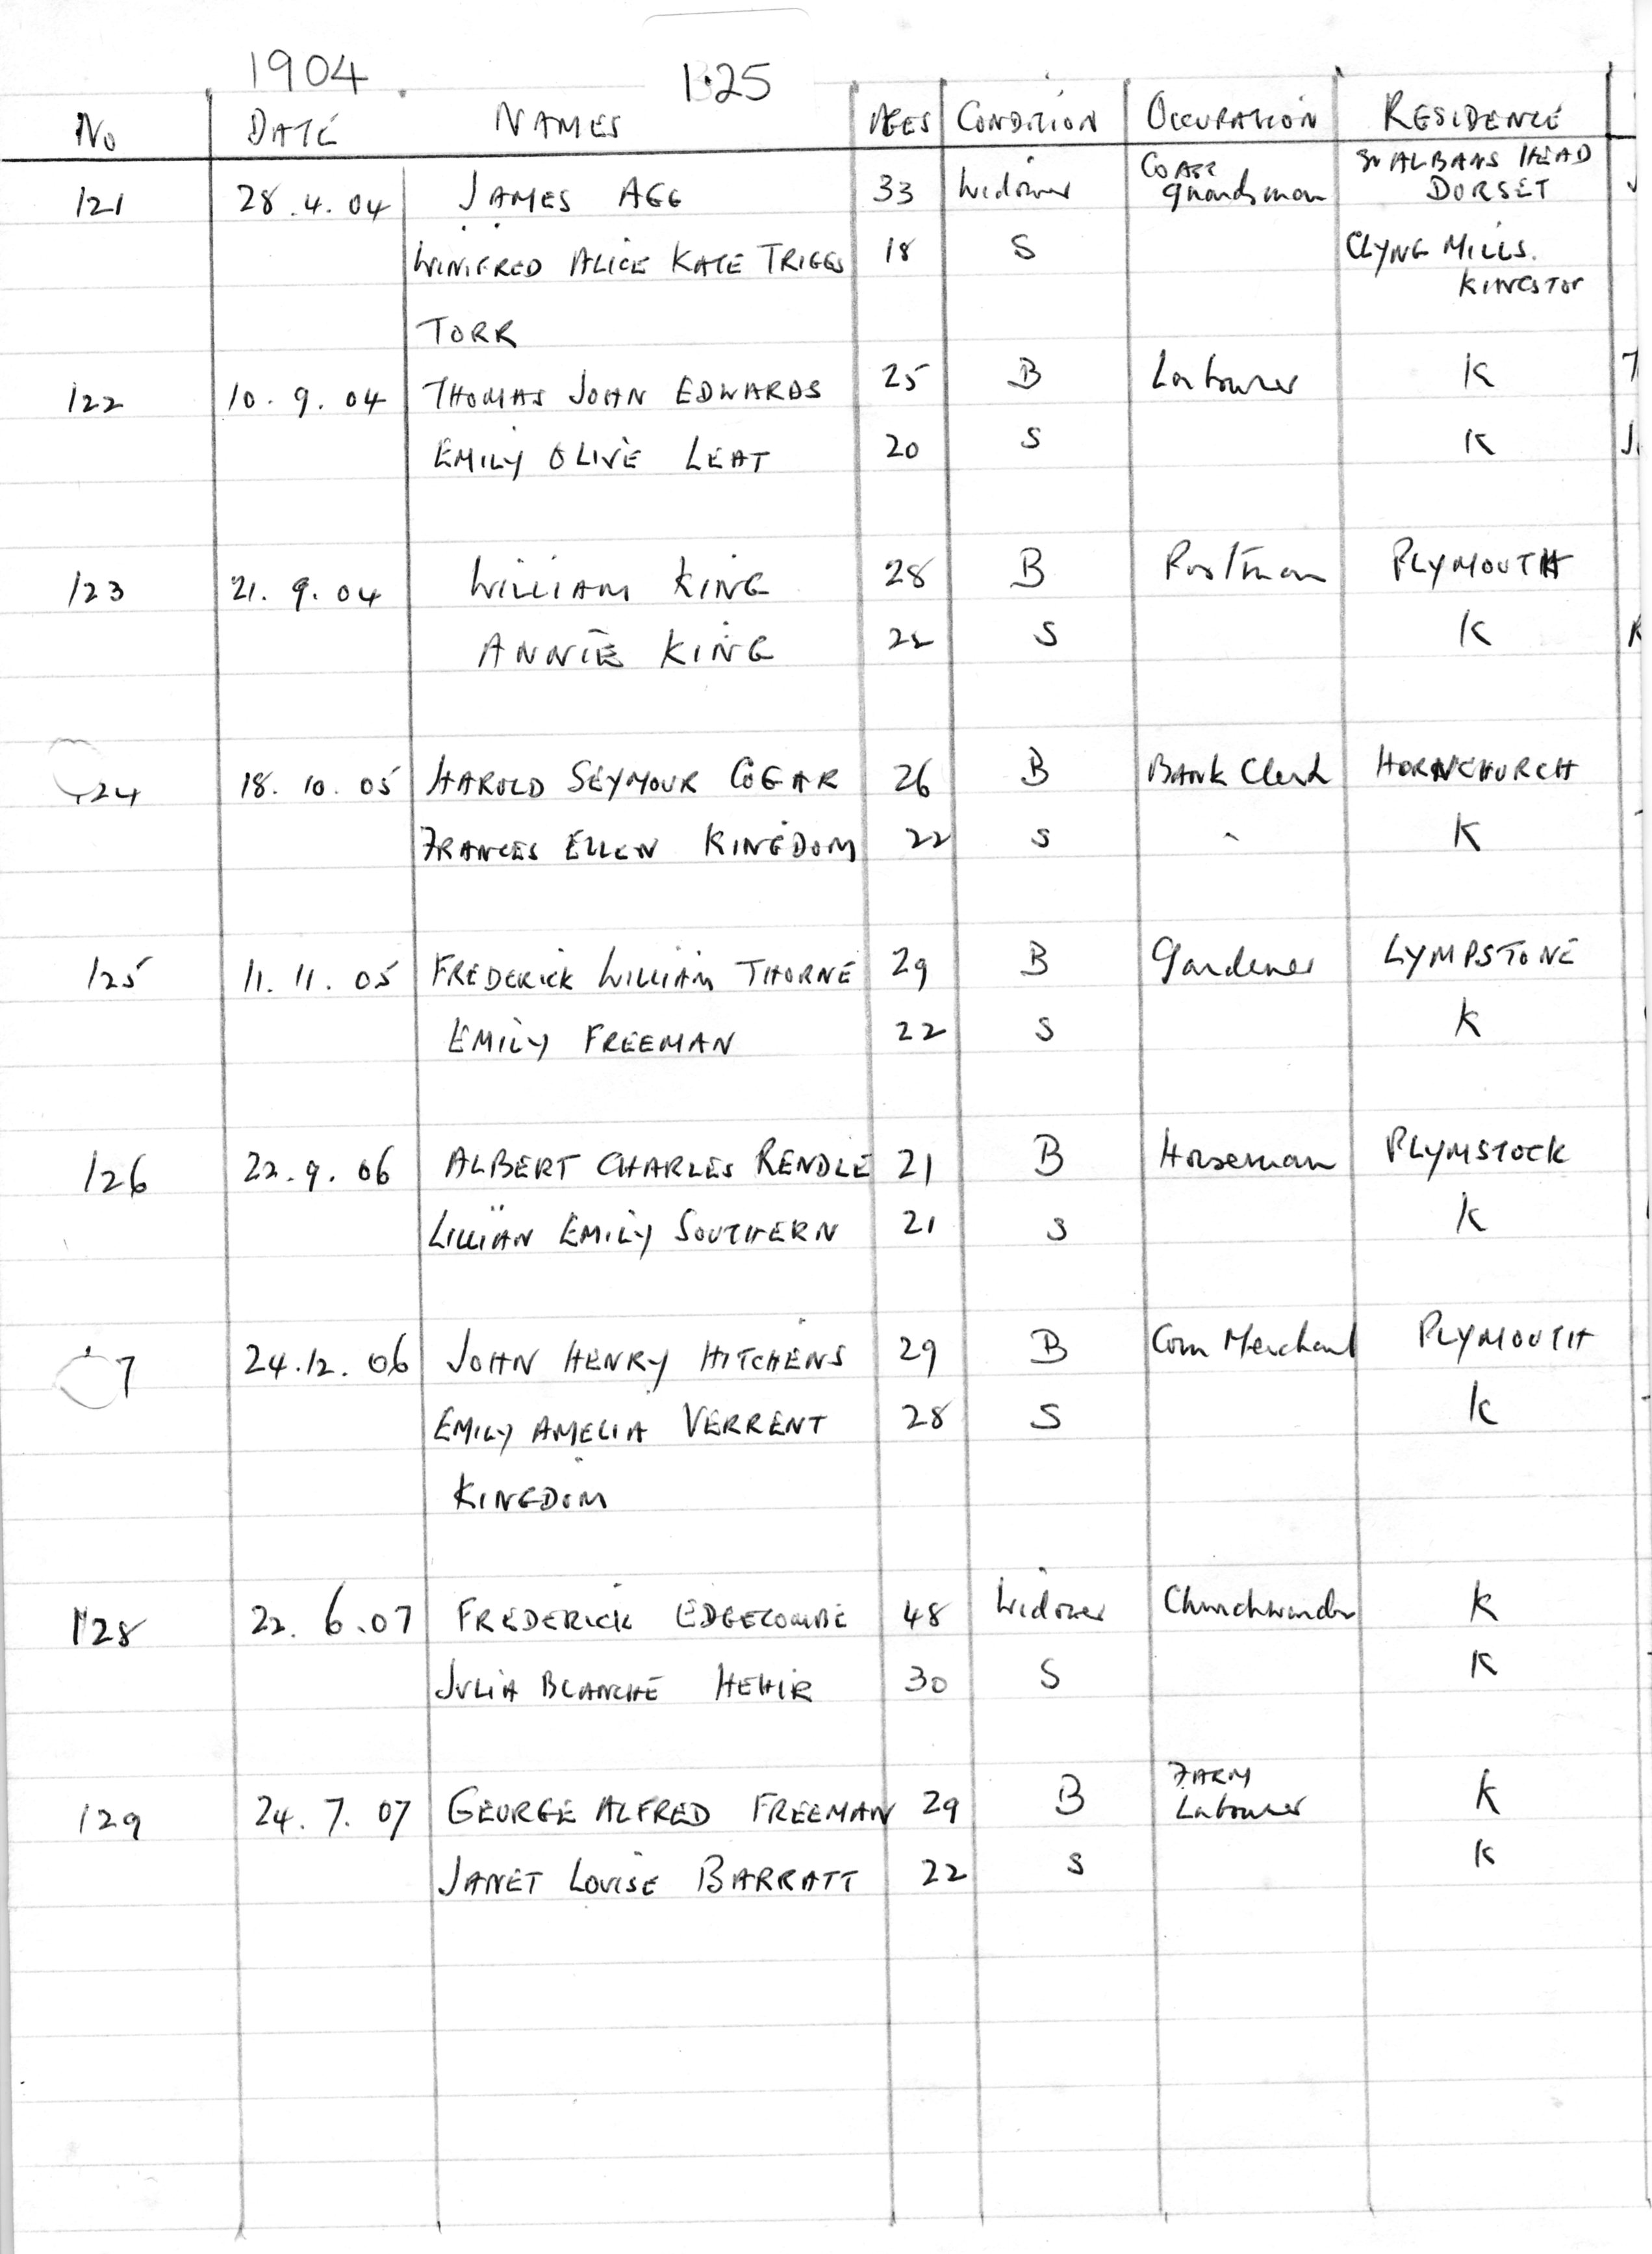 1904 1.25
No DATE NAMES AGES CONDITION OCCUPATION RESIDENCE
121 28.4.04 JAMES AGG 33 Widower Coast guardsman St ALBANS HEAD DORSET
WINIFRED ALICE KATE TRIGGS 18 S CLYNG MILLS. KINGSTON
TORR
122 10.9.04 THOMAS JOHN EDWARDS 25 B Labourer K
EMILY OLIVE LEAT 20 S K
123 21.9.04 WILLIAM KING 28 B Postman PLYMOUTH
ANNIE KING S K
124 18.10.05 HAROLD SEYMOUR COGAR 26 B Bank Clerk HORNCHURCH
FRANCES ELLEN KINGDOM 22 S - K
125 11.11.05 FREDERICK WILLIAM THORNE 29 B Gardener LYMPSTONE
EMILY FREEMAN 22 S K
126 22.9.06 ALBERT CHARLES RENDLE 21 B Horseman PLYMSTOCK
LILLIAN EMILY SOUTHERN 21 S K
7 24.12.06 JOHN HENRY HITCHENS 29 B Corn Merchant PLYMOUTH
EMILY AMELIA VERRENT 28 S K
KINGDOM
128 22.6.07 FREDERICK EDGECOMBE 48 Widower Churchwarden K
JULIA BLANCHE HEHIR 30 S K
129 24.7.07 GEORGE ALFRED FREEMAN 29 B FARM Labourer K
JANET LOUISE BARRATT 22 S K